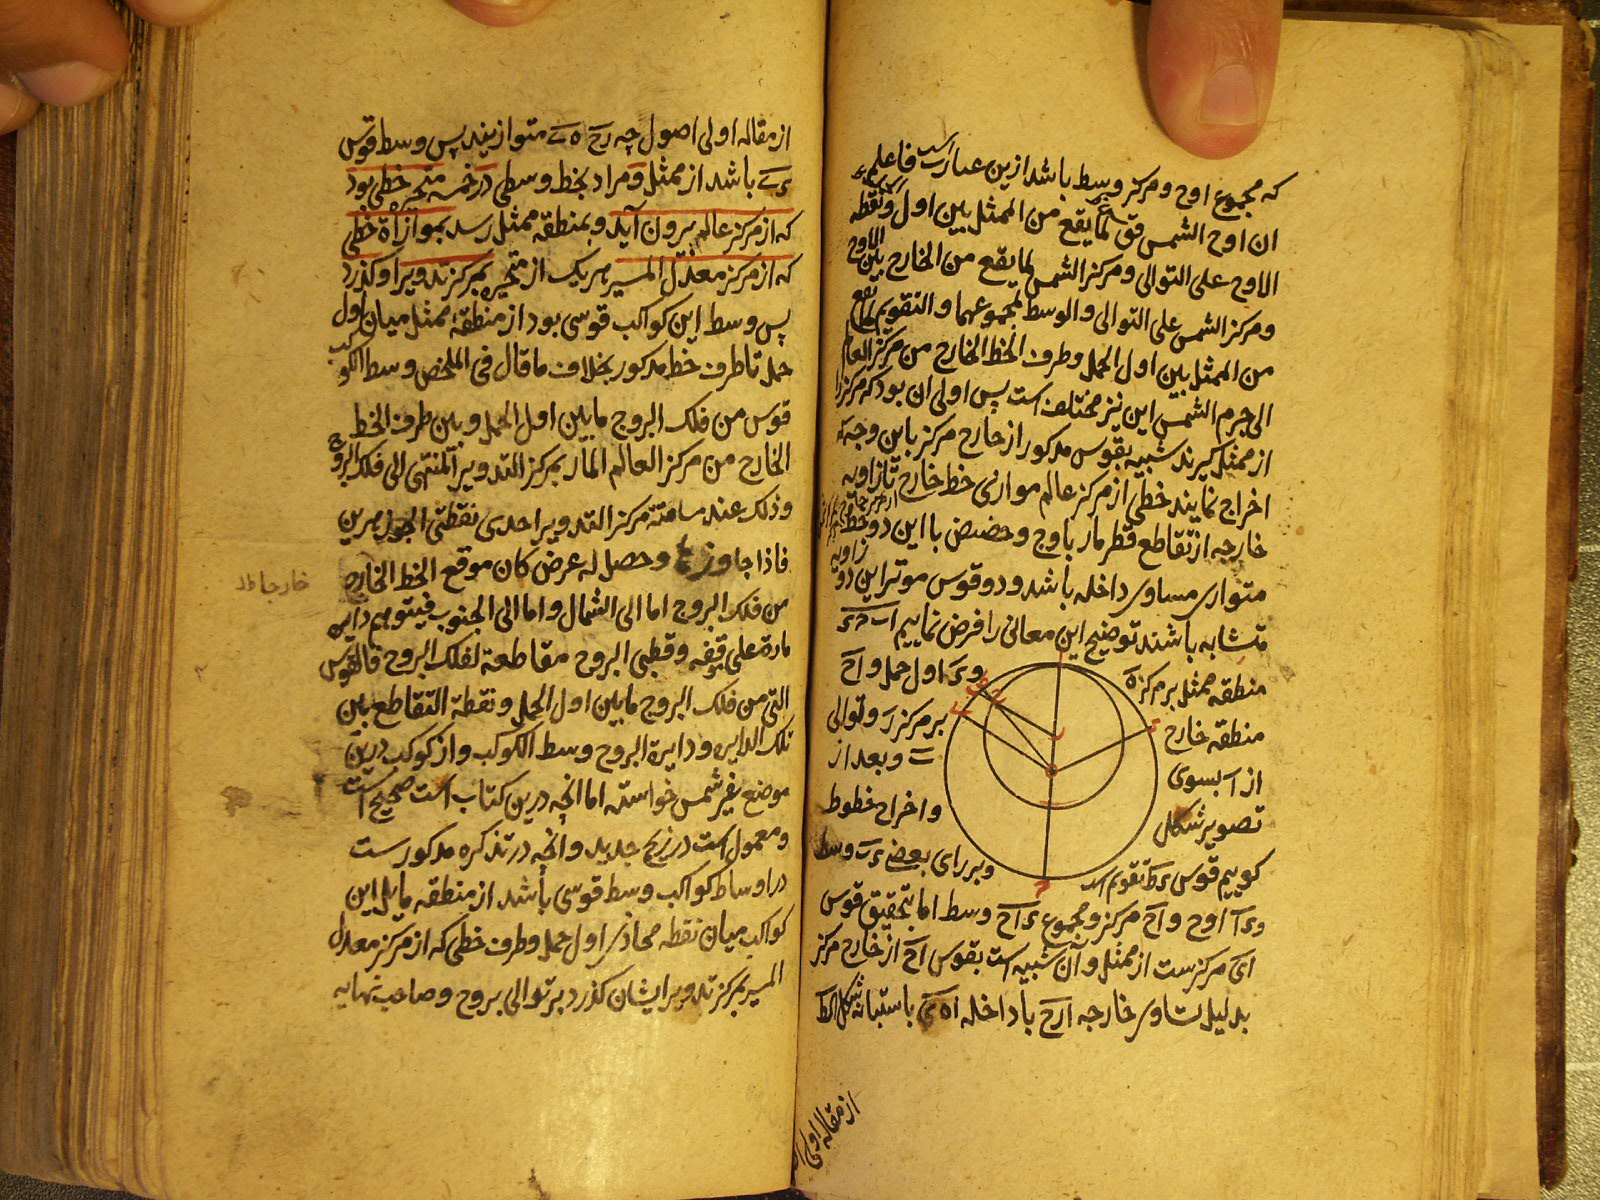 که مجموع اوج و مرکز وسط باشد ازین عبارت است فاعلم
ان اوج الشمس قوس لما یقع من الممثل بین اول و نقطه
الاوج علی التوالی و مرکز الشمس لما یقع من الخارج بین الاوج
و مرکز الشمس علی التوالی والوسط لمجموعهما والتقویم لما یقع
من الممثل بین اول الحمل وطرف الخط الخارج من مرکز العالم
الی جرم الشمس این نیز مختلف است پس اولی ان بود که مرکز را
از ممثل گیرند شبیه بقوس مذکور از خارج مرکز باین وجه که
اخراج نمایند خطی از مرکز عالم موازی خط خارج تا زاویه
خارجه از تقاطع قطر مار باوج و حضیض با این دو خط
متوازی مساوی داخله باشد و دو قوس موتر این دو زاویه
متشابه باشند توضیح این معانی را فرض نماییم
منطقه ممثل بر مرکز ه
و ء اول حمل و اح
منطقه خارج
بر مرکز ر و توالی
از ا بسوی
ب و بعد از
تصویر شکل
و اخراج خطوط
کوییم قوس ء ط تقویم است
و بر رای بعضی وسط
و ء ا اوج و اح مرکز و مجموع ء اح وسط اما بتحقیق قوس
ای مرکزست از ممثل و آن شبیه است بقوس اح از خارج مرکز
بدلیل تساوی خارجه ارح با داخله اه ی باستبانه شکل کط
از مقاله اولی
از مقاله اولی اصول چه رح ه ی متوازیند پس وسط قوس
ء ی باشد از ممثل و مراد بخط وسطی در خمسه متحیره خطی بود
که از مرکز عالم بیرون آید و بمنطقه ممثل رسد بموازاة خطی
که از مرکز معدل المسیر هر یک از متحیره بمرکز تدویر او گذرد
پس وسط این کواکب قوسی بود از منطقه ممثل میان اول
حمل تا طرف خط مذکور بخلاف ما قال فی الملخص وسط الکوکب
قوس من فلک البروج مابین اول الحمل و بین طرف الخط
الخارج من مرکز العالم المار بمرکز التدویر المنتهی الی فلک البروج
و ذلک عند مسامتة مرکز التدویر احدی نقطتی الجوزهرین
فاذا جاوز و حصل له عرض کان موقع الخط الخارج
خارجا
من فلک البروج اما الی الشمال و اما الی الجنوب فیتوهم دایره
مارة علی موقعه و قطبی البروج مقاطعة لفلک البروج فالقوس
التی من فلک البروج مابین اول الحمل و نقطة التقاطع بین
تلک الدایره و دایرة البروج وسط الکوکب و از کوکب درین
موضع غیر شمس خواسته اما انچه درین کتاب است صحیح است
و معمول است در زیج جدید و انچه در تذکره مذکورست
در اوساط کواکب وسط قوسی باشد از منطقه مایل این
کواکب میان نقطه محاذی اول حمل و طرف خطی که از مرکز معدل
المسیر بمرکز تدویر ایشان گذرد بر توالی بروج و صاحب نهایه